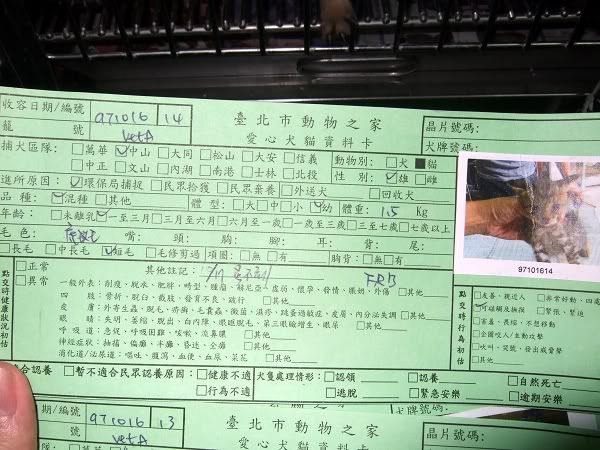 收容日期/編號 971016 14
臺北市動物之家
晶片號碼:
籠 號 VetA
愛心犬貓資料卡
犬牌號碼:
捕犬區隊: □萬華 ☑中山 □大同 □松山 □大安 □信義 動物別: □犬 ■貓
□中正 □文山 □內湖 □南港 □士林 □北投 性 別: ☑雄 □雌
進所原因: ☑環保局捕捉 □民眾拾獲 □民眾棄養 □外送犬 □回收犬
品 種: ☑混種 □其他 體 型: □大 □中 □小 ☑幼 體重: 1.5 Kg
年齡: □未離乳 ☑一至三月 □三月至六月 □六月至一歲 □一至三歲 □三至七歲 □七歲以上
毛 色: 虎斑 嘴: 頭: 胸: 腳: 耳: 背: 尾:
□長毛 □中長毛 ☑短毛 □毛修剪過 項圈: □無 □有 胸背: □無 □有
97101614
點交時健康狀況初估
□正常
□異常
其他註記:
FRB
一般外觀: 削瘦、脫水、肥胖、畸型、腫瘤、赫尼亞、虛弱、懷孕、發情、脹奶、外傷 □其他
四 肢: 骨折、脫臼、截肢、發育不良、跛行 □其他
皮 膚: 外寄生蟲、脫毛、疥癬、毛囊蟲、黴菌、濕疹、跳蚤過敏症、皮屑、內分泌失調 □其他
眼 睛: 失明、萎縮、脫出、白內障、眼睫脫毛、第三眼瞼增生、眼屎 □其他
呼吸道: 急促、呼吸困難、咳嗽、流鼻膿 □其他
神經症狀: 抽搐、偏癱、半癱、昏迷、全癱 □其他
消化道/泌尿道: 嘔吐、腹瀉、血便、血尿、菜花 □其他
點交時行為初估
□友善、親近人 □非常好動、四處
☑可碰觸及撫摸 □緊張、緊迫
□害羞、畏縮、不想移動
□企圖咬人/主動攻擊
□吠叫、哭號、發出威脅聲
□其他
合認養 □暫不適合民眾認養原因: □健康不適 犬隻處理情形: □認領 □認養 □自然死亡
□行為不適 □逃脫 □緊急安樂 □逾期安樂
期/編號 971016 13
臺北市動物之家
晶片號碼:
號 VetA
愛心犬貓資料卡
犬牌號碼: